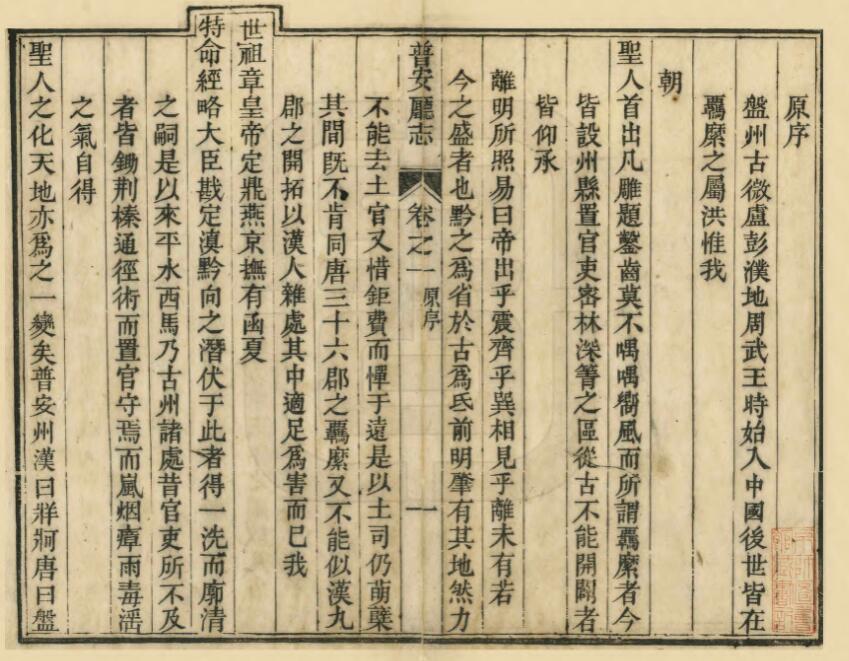 原序
盤州古微盧彭濮地周武王時始入中國後世皆在
羈縻之屬洪惟我
朝
聖人首出凡雕題鑿齒莫不喁喁嚮風而所謂羈縻者今
皆設州縣置官吏密林深箐之區從古不能開闢者
皆仰承
離明所照易曰帝出乎震齊乎巽相見乎離未有若
今之盛者也黔之爲省於古爲氐前明肇有其地然力
普安廳志 卷之一 原序 一
不能去土官又惜鉅費而憚于遠是以土司仍萌蘖
其間既不肯同唐三十六郡之羈縻又不能似漢九
郡之開拓以漢人雜處其中適足爲害而已我
世祖章皇帝定鼎燕京撫有函夏
特命經略大臣戡定滇黔向之潛伏于此者得一洗而廓清
之嗣是以來平水西馬乃古州諸處昔官吏所不及
者皆鋤荆榛通徑術而置官守焉而嵐烟瘴雨毒滛
之氣自得
聖人之化天地亦爲之一變矣普安州漢曰牂牁唐曰盤